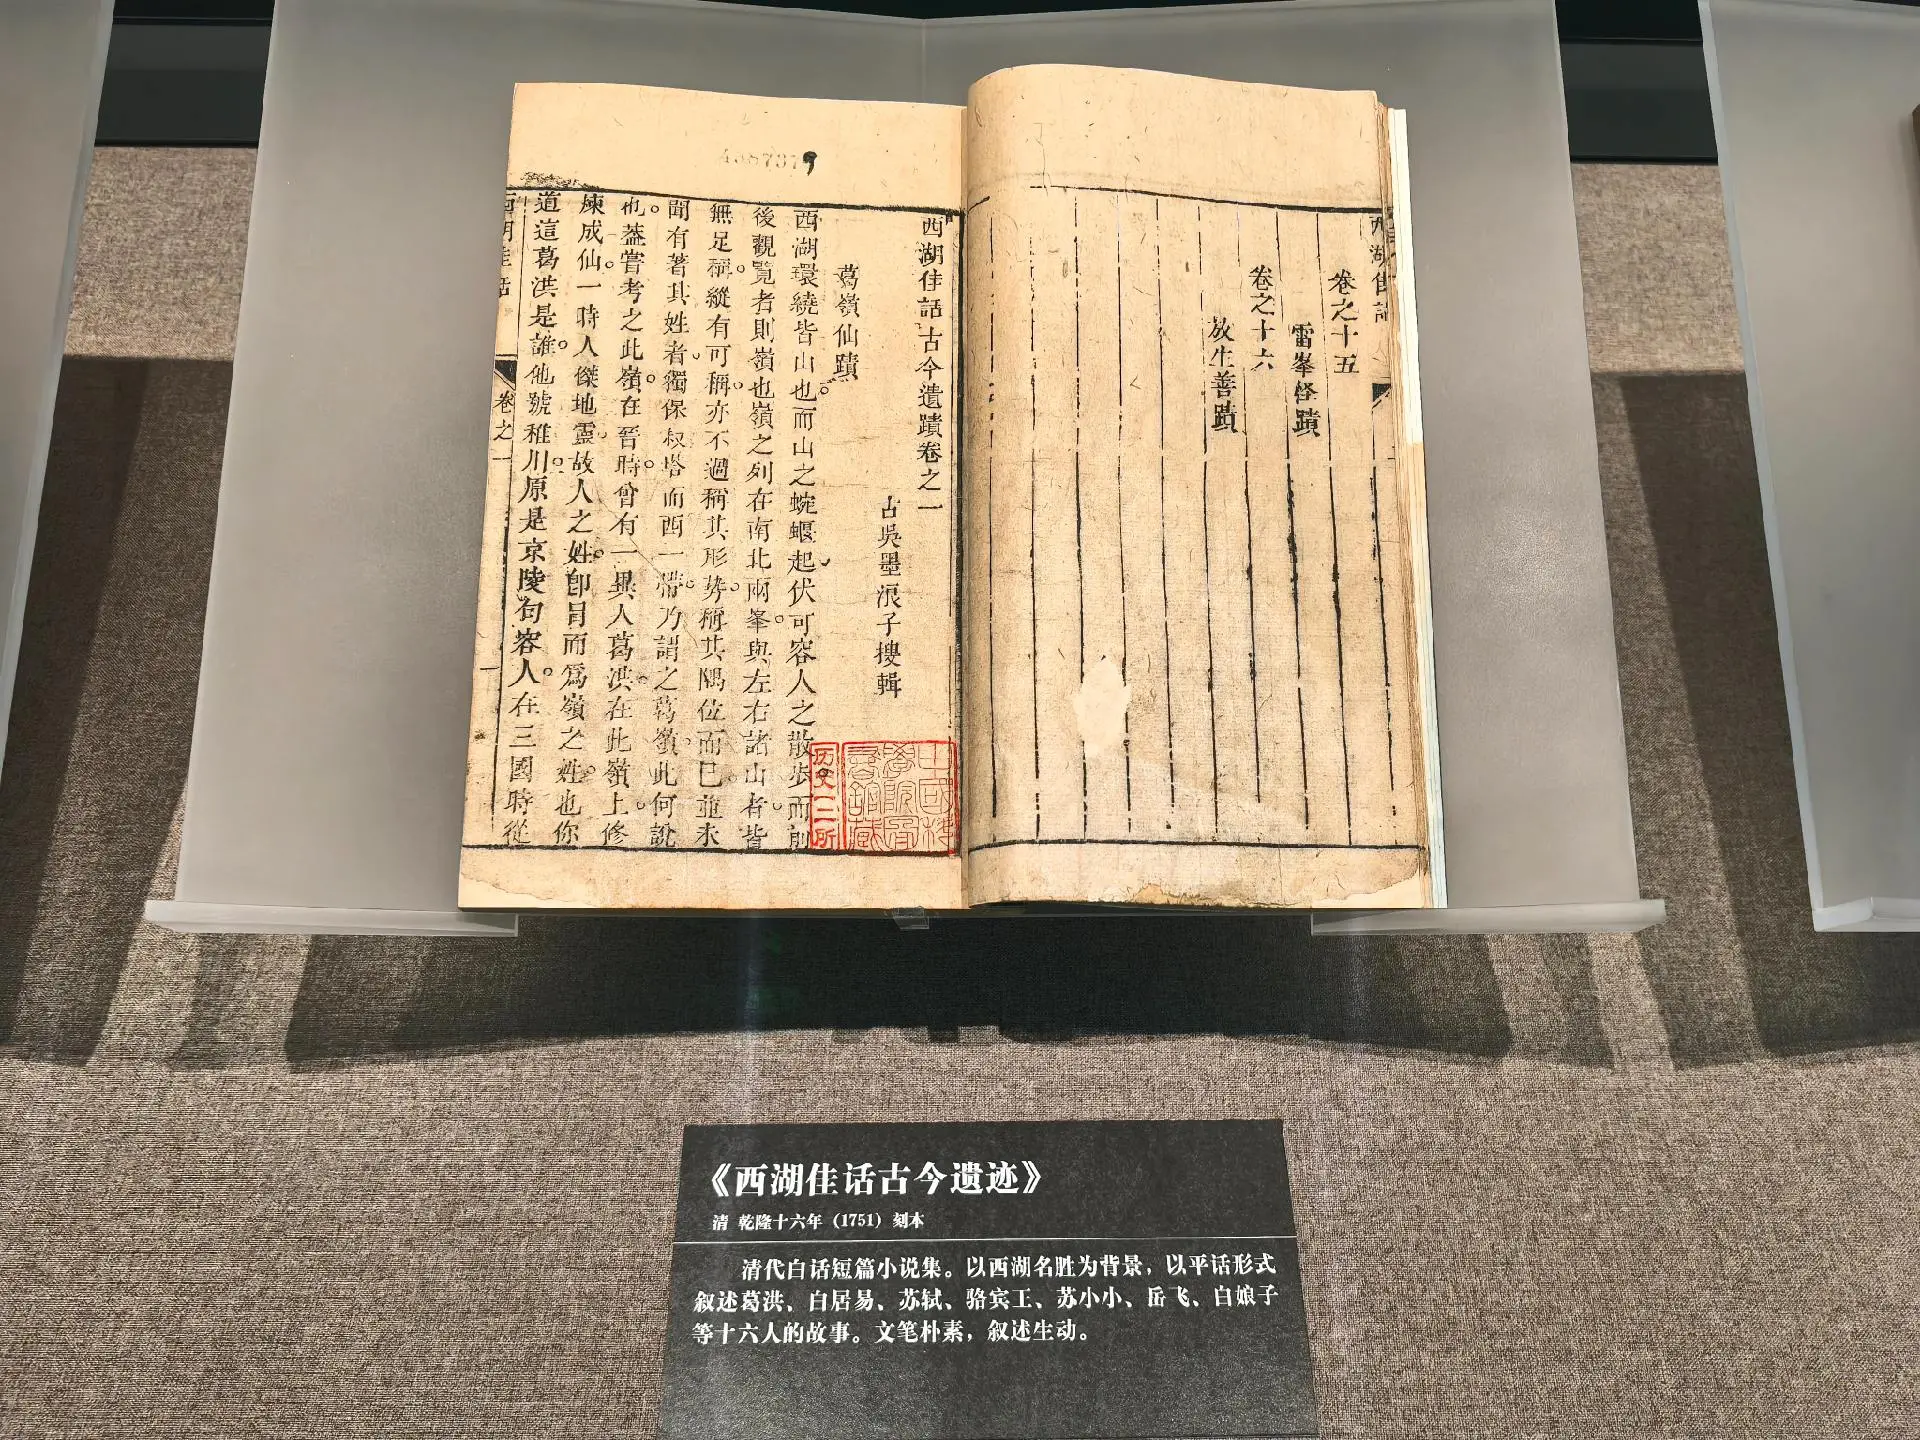 西湖佳話
卷之十五
雷峯怪蹟
卷之十六
放生善蹟
西湖佳話古今遺蹟卷之一
古吳墨浪子搜輯
葛嶺仙蹟
西湖環繞皆山也而山之蜿蝘起伏可容人之散步而前
後觀覽者則嶺也嶺之列在南北兩峯與左右諸山者皆
無足稱縱有可稱亦不過稱其形勢稱其隅位而已並未
聞有著其姓者獨保叔塔而西一帶乃謂之葛嶺此何說
也蓋嘗考之此嶺在晉時曾有一異人葛洪在此嶺上修
煉成仙一時人傑地靈故人之姓卽冐而爲嶺之姓也你
道這葛洪是誰他號稚川原是京陵句容人在三國時從
西湖佳話
卷之一
一
中國科
學院圖
書館藏
历史二所
《西湖佳话古今遗迹》
清 乾隆十六年（1751）刻本
清代白话短篇小说集。以西湖名胜为背景，以平话形式
叙述葛洪、白居易、苏轼、骆宾王、苏小小、岳飞、白娘子
等十六人的故事。文笔朴素，叙述生动。